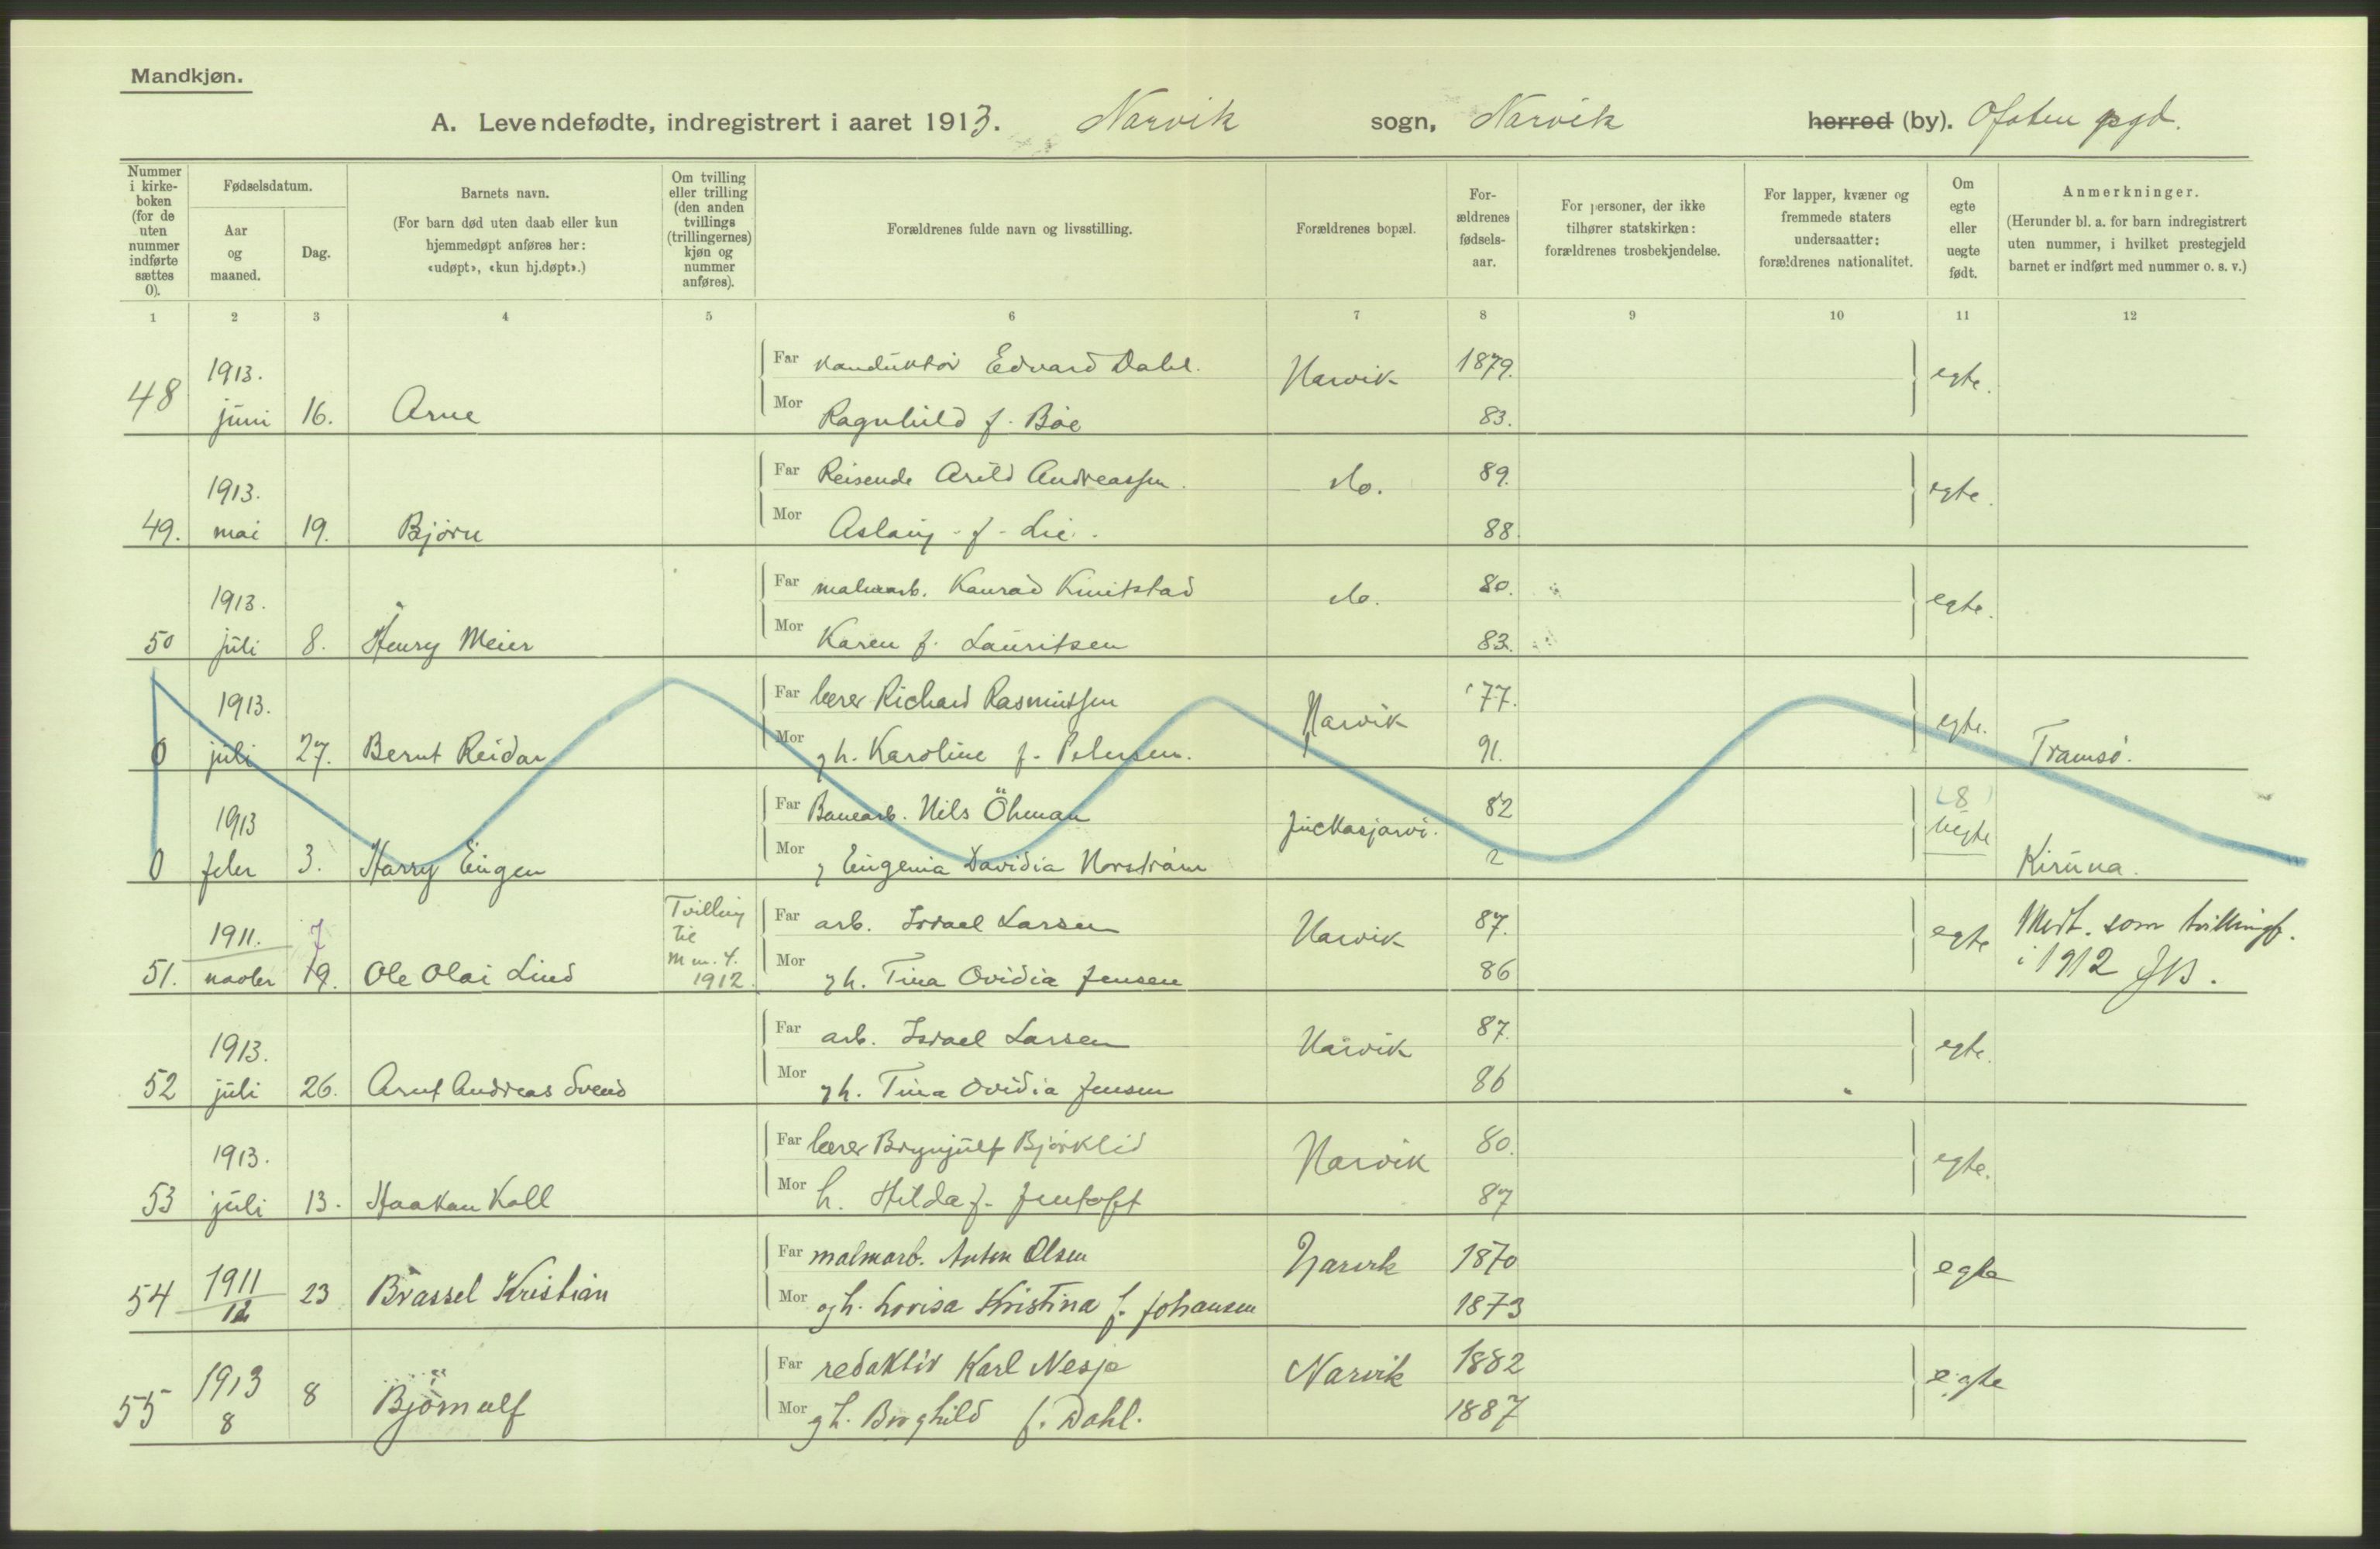 Mandkjøn.
A. Levendefødte, indregistrert i aaret 1913. Narvik sogn, Narvik herred (by). Ofoten pgd.
Nummer i kirke-boken (for de uten nummer indførte sættes 0).
Fødselsdatum.
Aar og maaned.
Dag.
Barnets navn.
(For barn død uten daab eller kun hjemmedøpt anføres her: «udøpt», «kun hj.døpt».)
Om tvilling eller trilling (den anden tvillings (trillingernes) kjøn og nummer anføres).
Forældrenes fulde navn og livsstilling.
Forældrenes bopæl.
For-ældrenes fødsels-aar.
For personer, der ikke tilhører statskirken: forældrenes trosbekjendelse.
For lapper, kvæner og fremmede staters undersaatter: forældrenes nationalitet.
Om egte eller uegte født.
Anmerkninger.
(Herunder bl. a. for barn indregistrert uten nummer, i hvilket prestegjeld barnet er indført med nummer o. s. v.)
1 2 3 4 5 6 7 8 9 10 11 12
1913. Far konduktør Edvard Dahl. Narvik 1879. egte.
48 juni 16. Arne Mor Ragnhild f. Bøe 83.
1913. Far Reisende Arild Andreassen. do. 89. egte.
49. mai 19. Bjørn Mor Aslaug f. Lie. 88.
1913. Far malmarb. Konrad Kvitstad do. 80. egte.
50 juli 8. Henry Meier Mor Karen f. Lauritsen 83.
1913. Far lærer Richard Rasmussen Narvik '77. egte.
0 juli 27. Bernt Reidar Mor gh. Karoline f. Petersen. 91. Tromsø.
1913 Far Banearb. Nils Öhman Juckasjarvi. 82 (8) uegte
0 feber 3. Harry Eugen Mor Eugenia Davidia Norström 2 Kiruna.
1911. 7 Tvilling til M nr. 4. 1912. Far arb. Israel Larsen Narvik 87. egte Medt. som tvillingf. i 1912
51. novbr 19. Ole Olai Lind Mor gh. Tina Ovidia Jensen 86
1913. Far arb. Israel Larsen Narvik 87. egte.
52 juli 26. Arnt Andreas Svend Mor gh. Tina Ovidia Jensen 86
1913. Far lærer Brynjulf Bjørklid Narvik 80. egte.
53 juli 13. Haakon Koll Mor h. Hilda f. Jentoft 87
54 1911 12 23 Brassel Kristian Far malmarb. Anton Olsen Narvik 1870 egte
Mor og h. Lovisa Kristina f. Johansen 1873
55 1913 8 8 Björnulf Far redaktør Karl Nesje Narvik 1882 egte
Mor gh. Borghild f. Dahl. 1887